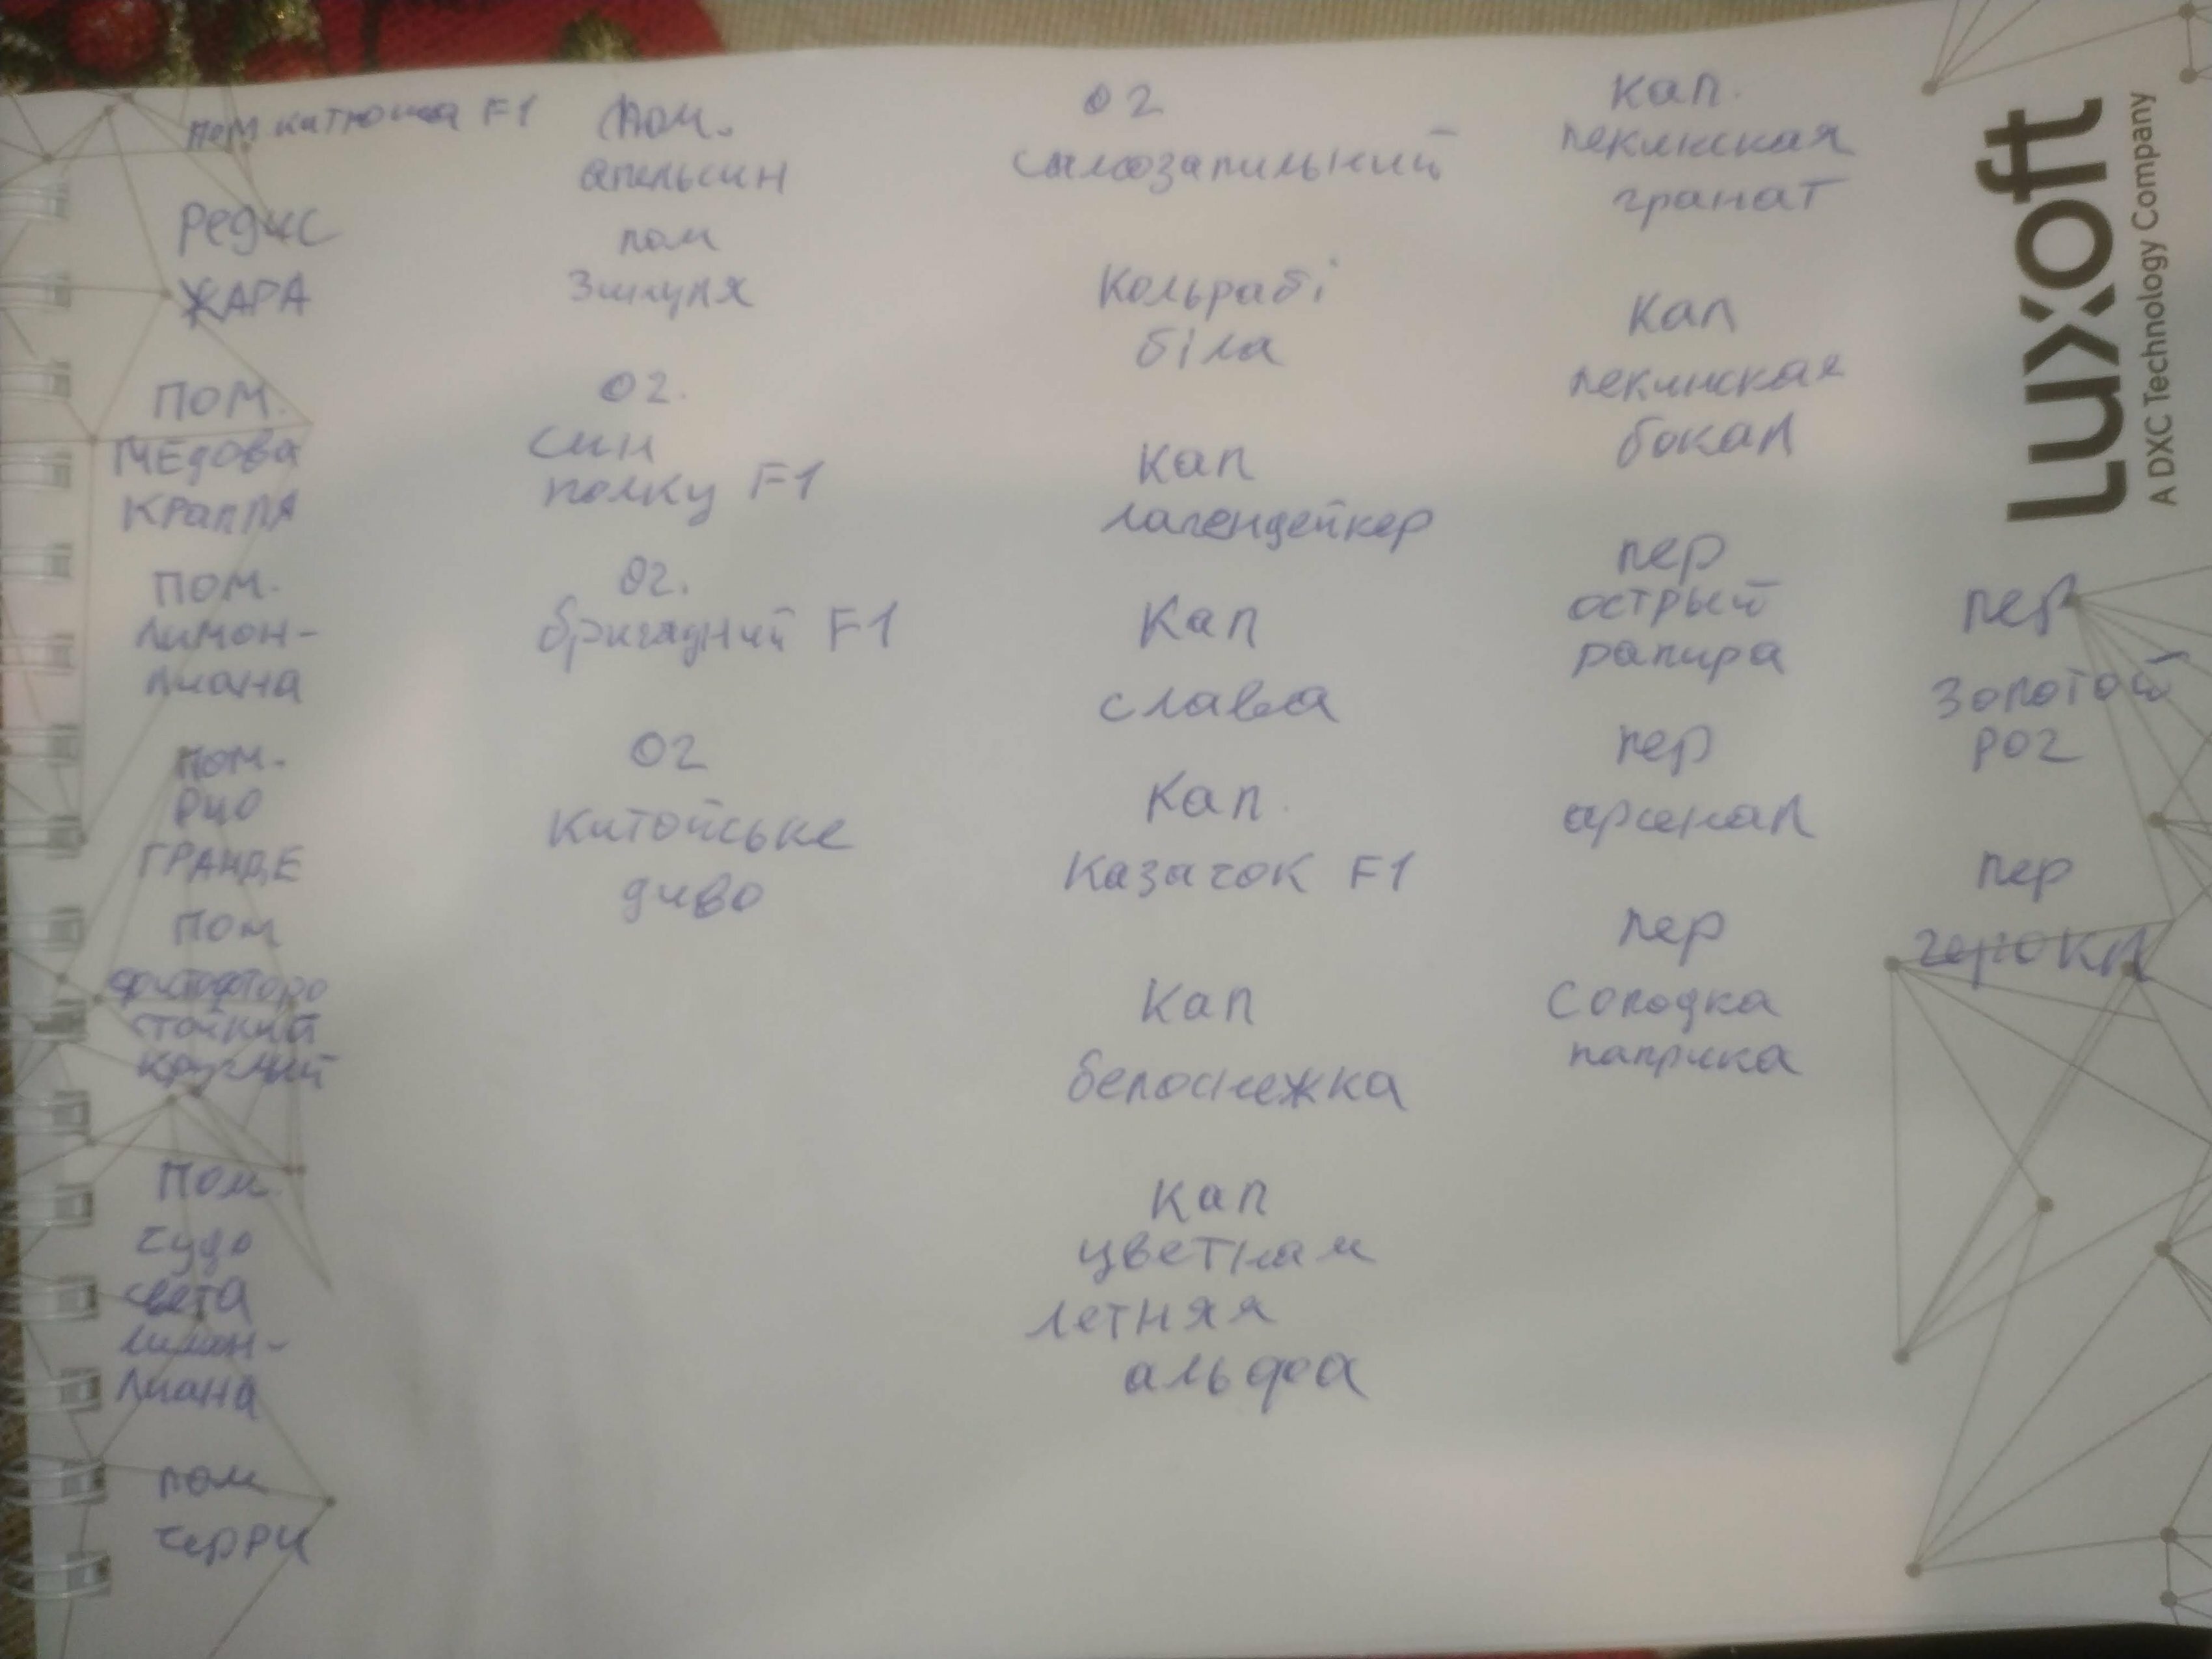 пом катюша F1
Редис
ЖАРА
ПОМ.
МЕДОВА
КРАПЛЯ
ПОМ.
Лимон-
лиана
пом.
РИО
ГРАНДЕ
Пом
фитофторо
стойкий
круглый
Пом.
чудо
света
лиман-
лиана
пом
черри
Пом.
апельсин
пом
Зимуля
ОГ.
син
полку F1
ОГ.
бригадний F1
ОГ
Китайське
диво
ОГ
самозапильний
Кольрабі
біла
Кап
лагендейкер
Кап
слава
Кап.
Казачок F1
Кап
белоснежка
Кап
цветная
летняя
альфа
Кап.
пекинская
гранат
Кап
пекинская
бокал
пер
острый
рапира
пер
арсенал
пер
Солодка
паприка
пер
Золотой
рог
пер
Luxoft
A DXC Technology Company